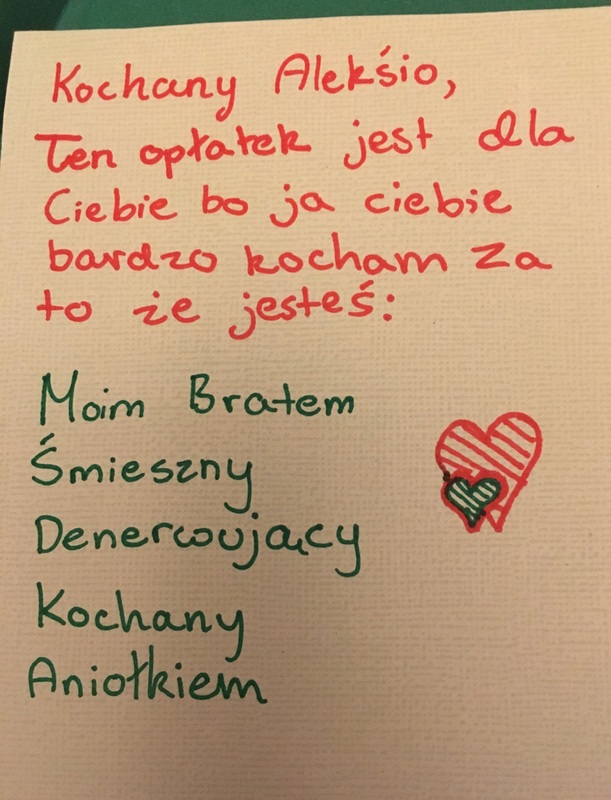 Kochany Alekśio,
Ten opłatek jest dla
Ciebie bo ja ciebie
bardzo kocham za
to że jesteś:
Moim Bratem
Śmieszny
Denerwujący
Kochany
Aniołkiem